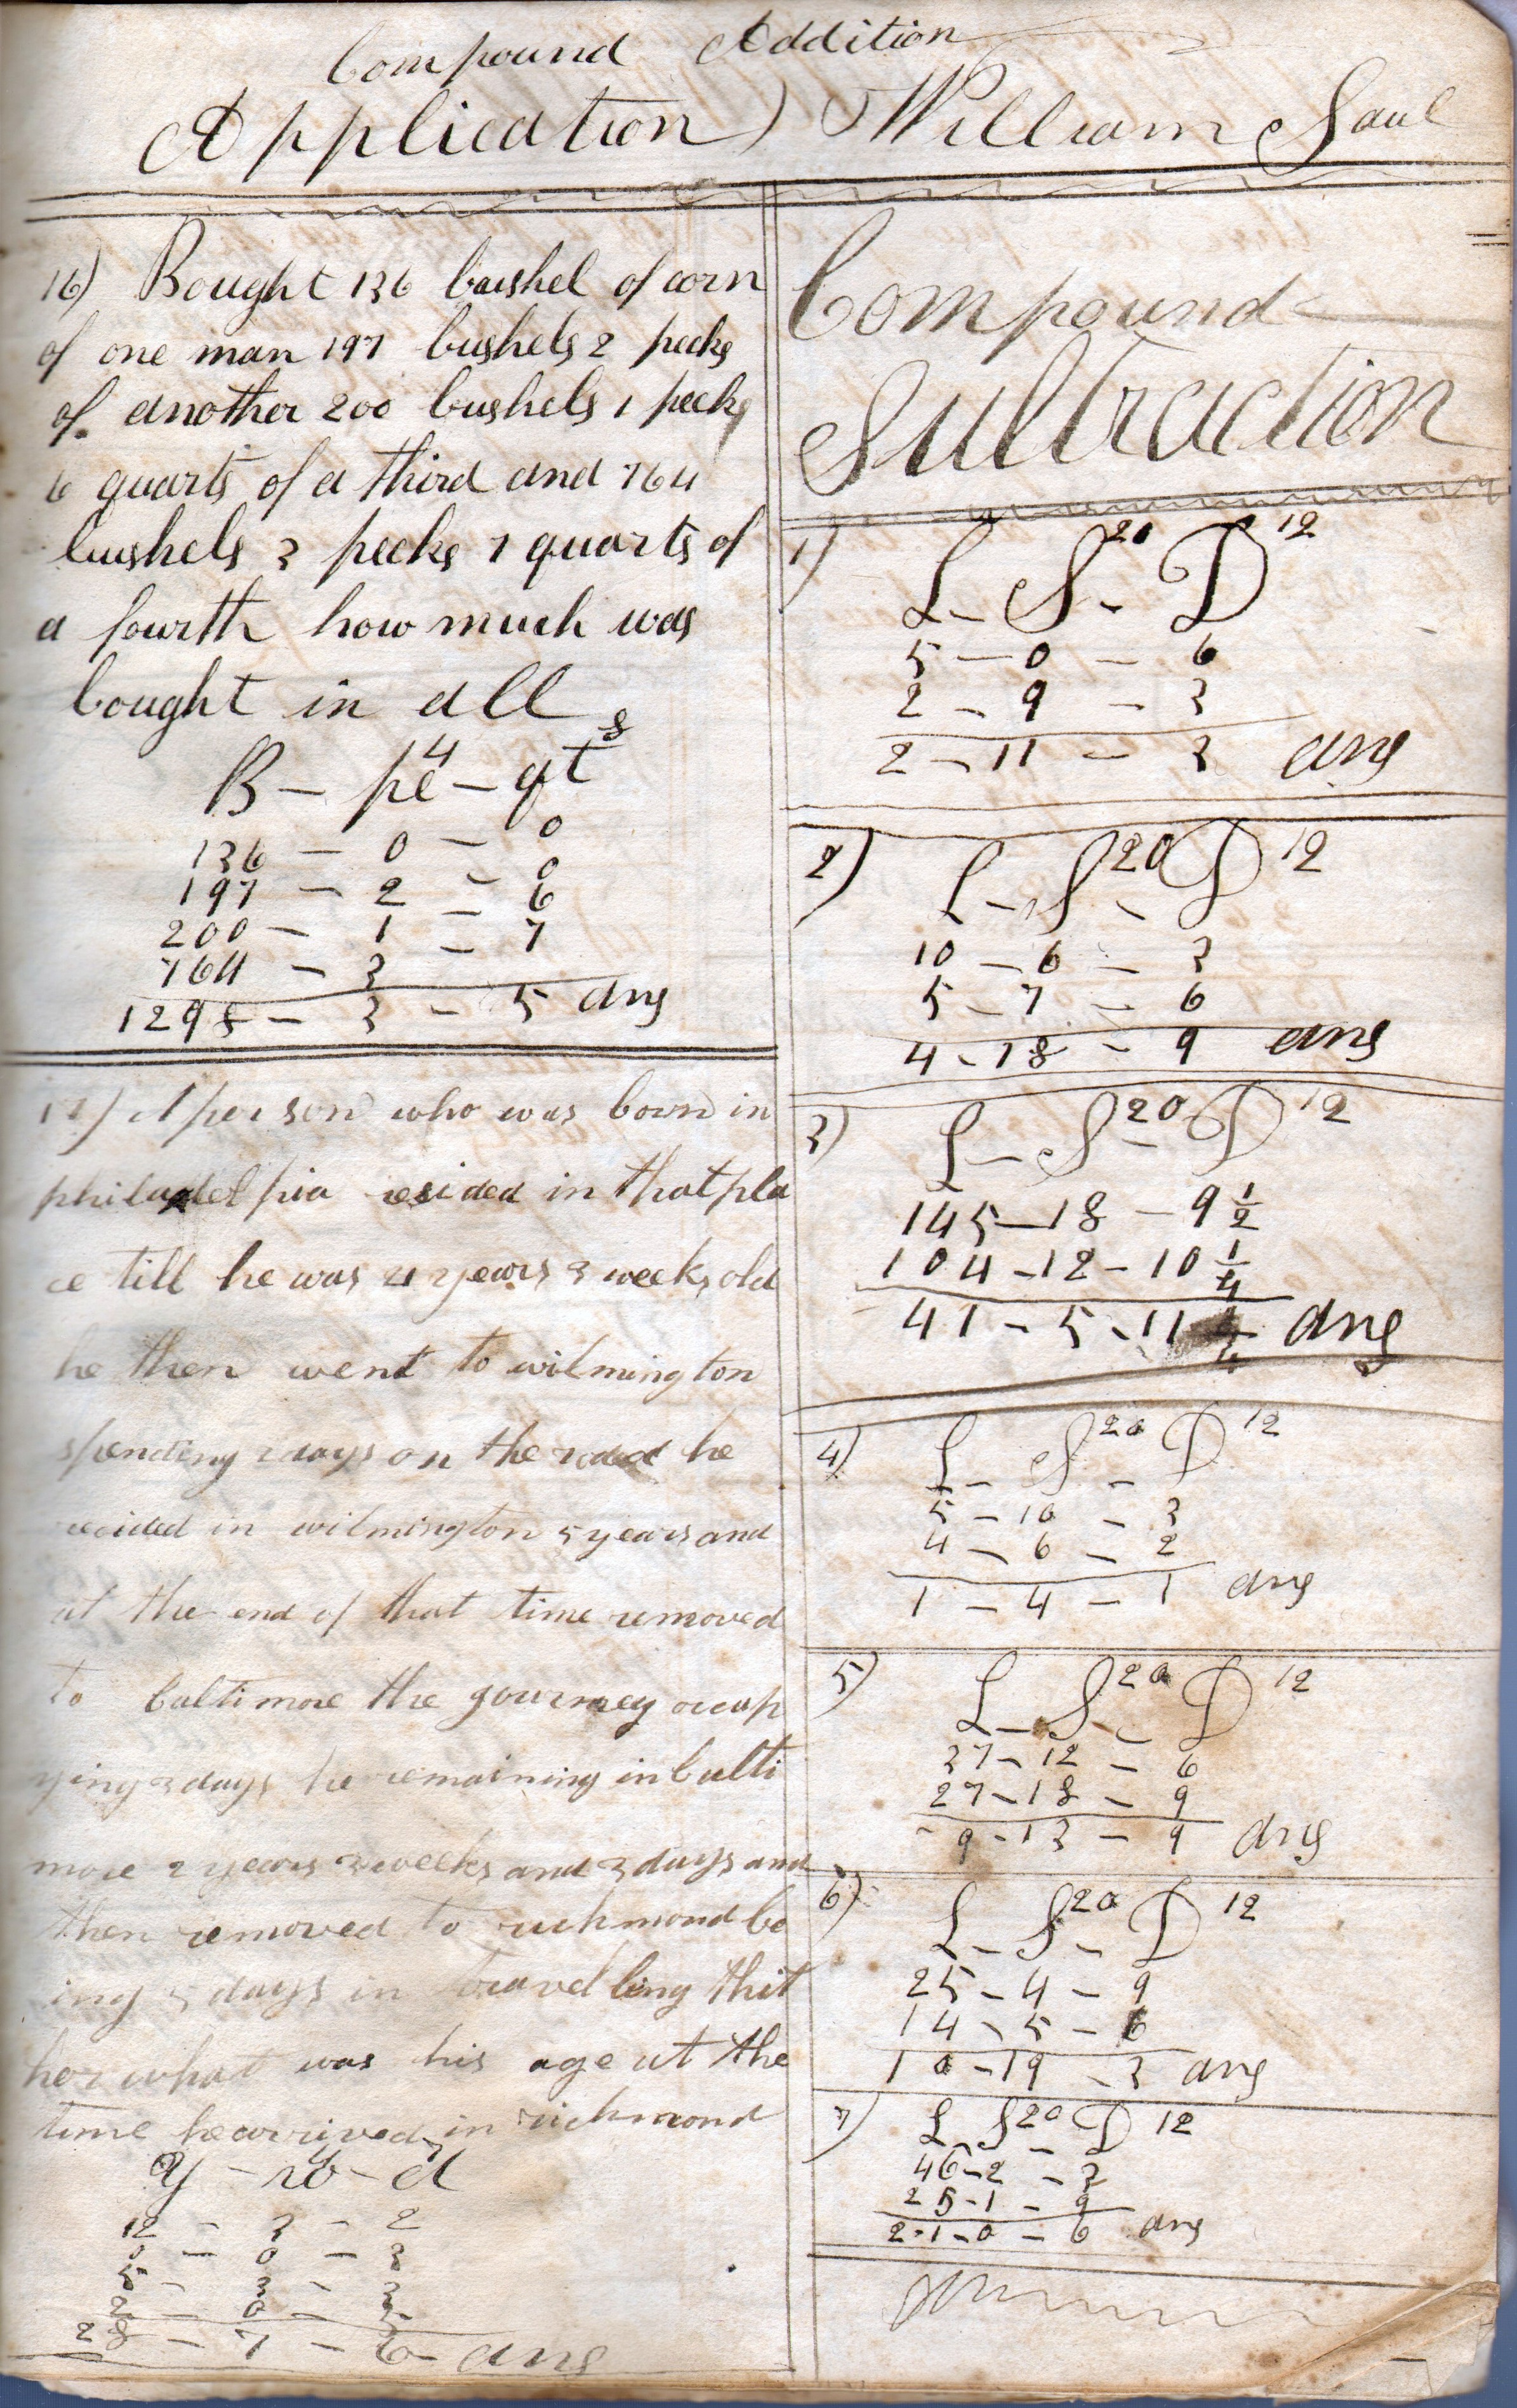 Compound Addition
Application) William Saul
16) Bought 136 bushel of corn
of one man 197 bushels 2 pecks
of another 200 bushels 1 pecks
6 quarts of a third and 764
bushels 3 pecks 7 quarts of
a fourth how much was
bought in all
B — pe 4 — qt 8
136 — 0 — 0
197 — 2 — 0
200 — 1 — 6
764 — 3 — 7
1298 — 3 — 5 ans
17) A person who was born in
philadelpia resided in that pla
ce till he was 21 years 3 weeks old
he then went to wilmington
spending 2 days on the road he
recided in wilmington 5 years and
at the end of that time removed
to baltimore the gourney occup
ying 3 days he remaining in balti
more 2 years 3 weeks and 3 days and
then removed to richmond be
ing 5 days in travelling thit
her what was his age at the
time he arrived in richmond
y — w — d
12 — 3 — 2
0 — 3
5 — 3 — 3
2 — 0 —
28 — 7 — 6 ans
Compound
Subtraction
1) L — S 20 — D 12
5 — 0 — 6
2 — 9 — 3
2 — 11 — 3 ans
2) L — S 20 — D 12
10 — 6 — 3
5 — 7 — 6
4 — 18 — 9 ans
3) L — S 20 — D 12
145 — 18 — 9 1/2
104 — 12 — 10 1/4
41 — 5 — 11 1/4 ans
4) L — S 20 — D 12
5 — 10 — 3
4 — 6 — 2
1 — 4 — 1 ans
5) L — S 20 — D 12
37 — 12 — 6
27 — 18 — 9
9 — 13 — 9 ans
6) L — S 20 — D 12
25 — 4 — 9
14 — 5 — 6
10 — 19 — 3 ans
7) L — S 20 — D 12
46 — 2 — 3
25 — 1 — 9
21 — 0 — 6 ans